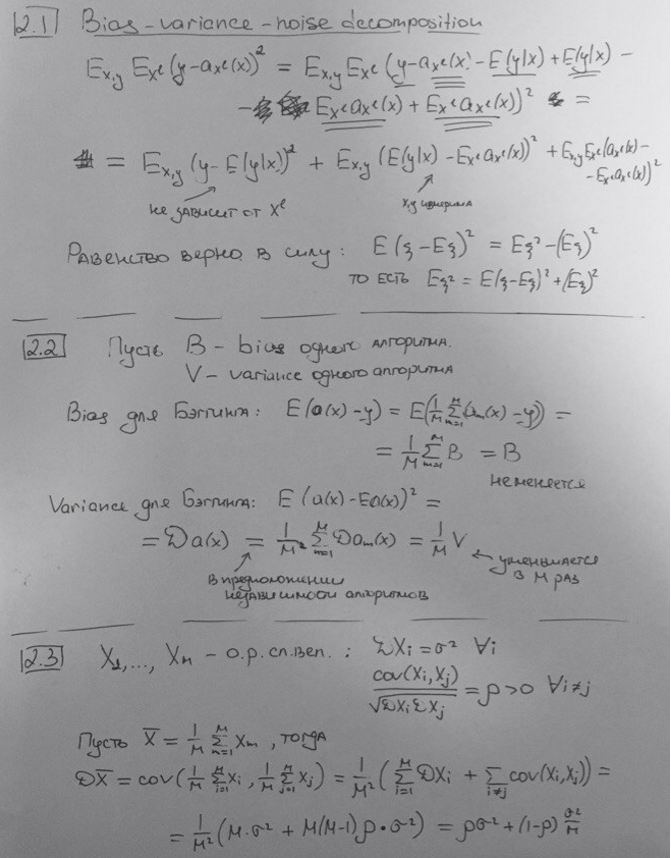 2.1 Bias-variance-noise decomposition
E_{x,y} E_{X^ℓ}(y-a_{X^ℓ}(x))² = E_{x,y} E_{X^ℓ}(y-a_{X^ℓ}(x)-E(y|x)+E(y|x)-
- E_{X^ℓ}a_{X^ℓ}(x) + E_{X^ℓ}a_{X^ℓ}(x))² =
= E_{x,y}(y-E(y|x))² + E_{x,y}(E(y|x)-E_{X^ℓ}a_{X^ℓ}(x))² + E_{x,y}E_{X^ℓ}(a_{X^ℓ}(x)-
-E_{X^ℓ}a_{X^ℓ}(x))²
не зависит от X^ℓ
Равенство верно в силу: E(ξ-Eξ)² = Eξ²-(Eξ)²
то есть Eξ² = E(ξ-Eξ)²+(Eξ)²
2.2 Пусть B - bias одного алгоритма.
V - variance одного алгоритма
Bias для Бэггинга: E(a(x)-y) = E(1/M Σ_{m=1}^{M}(a_m(x)-y)) =
= 1/M Σ_{m=1}^{M} B = B
не меняется
Variance для Бэггинга: E(a(x)-Ea(x))² =
= Da(x) = 1/M² Σ_{m=1}^{M} Da_m(x) = 1/M V
уменьшается
в M раз
В предположении
независимости алгоритмов
2.3 X_1,..., X_M - о.р.сл.вел.: DX_i = σ² ∀i
cov(X_i,X_j)/√DX_i DX_j = ρ>0 ∀i≠j
Пусть X̄ = 1/M Σ_{m=1}^{M} X_m, тогда
DX̄ = cov(1/M Σ_{i=1}^{M} X_i, 1/M Σ_{j=1}^{M} X_j) = 1/M²(Σ_{i=1}^{M} DX_i + Σ_{i≠j} cov(X_i,X_j)) =
= 1/M²(M·σ² + M(M-1)ρ·σ²) = ρσ²+(1-ρ)σ²/M